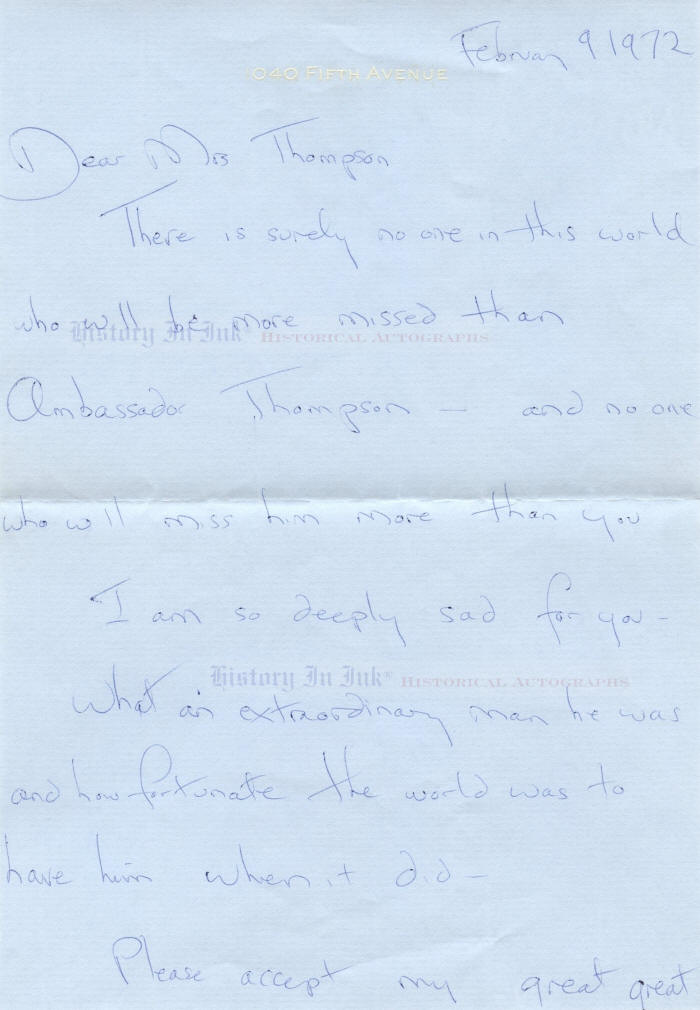 February 9 1972
040 FIFTH AVENUE
Dear Mrs Thompson
There is surely no one in this world
who will be more missed than
History In Ink® HISTORICAL AUTOGRAPHS
Ambassador Thompson — and no one
who will miss him more than you
I am so deeply sad for you -
History In Ink® HISTORICAL AUTOGRAPHS
What an extraordinary man he was
and how fortunate the world was to
have him when it did —
Please accept my great great